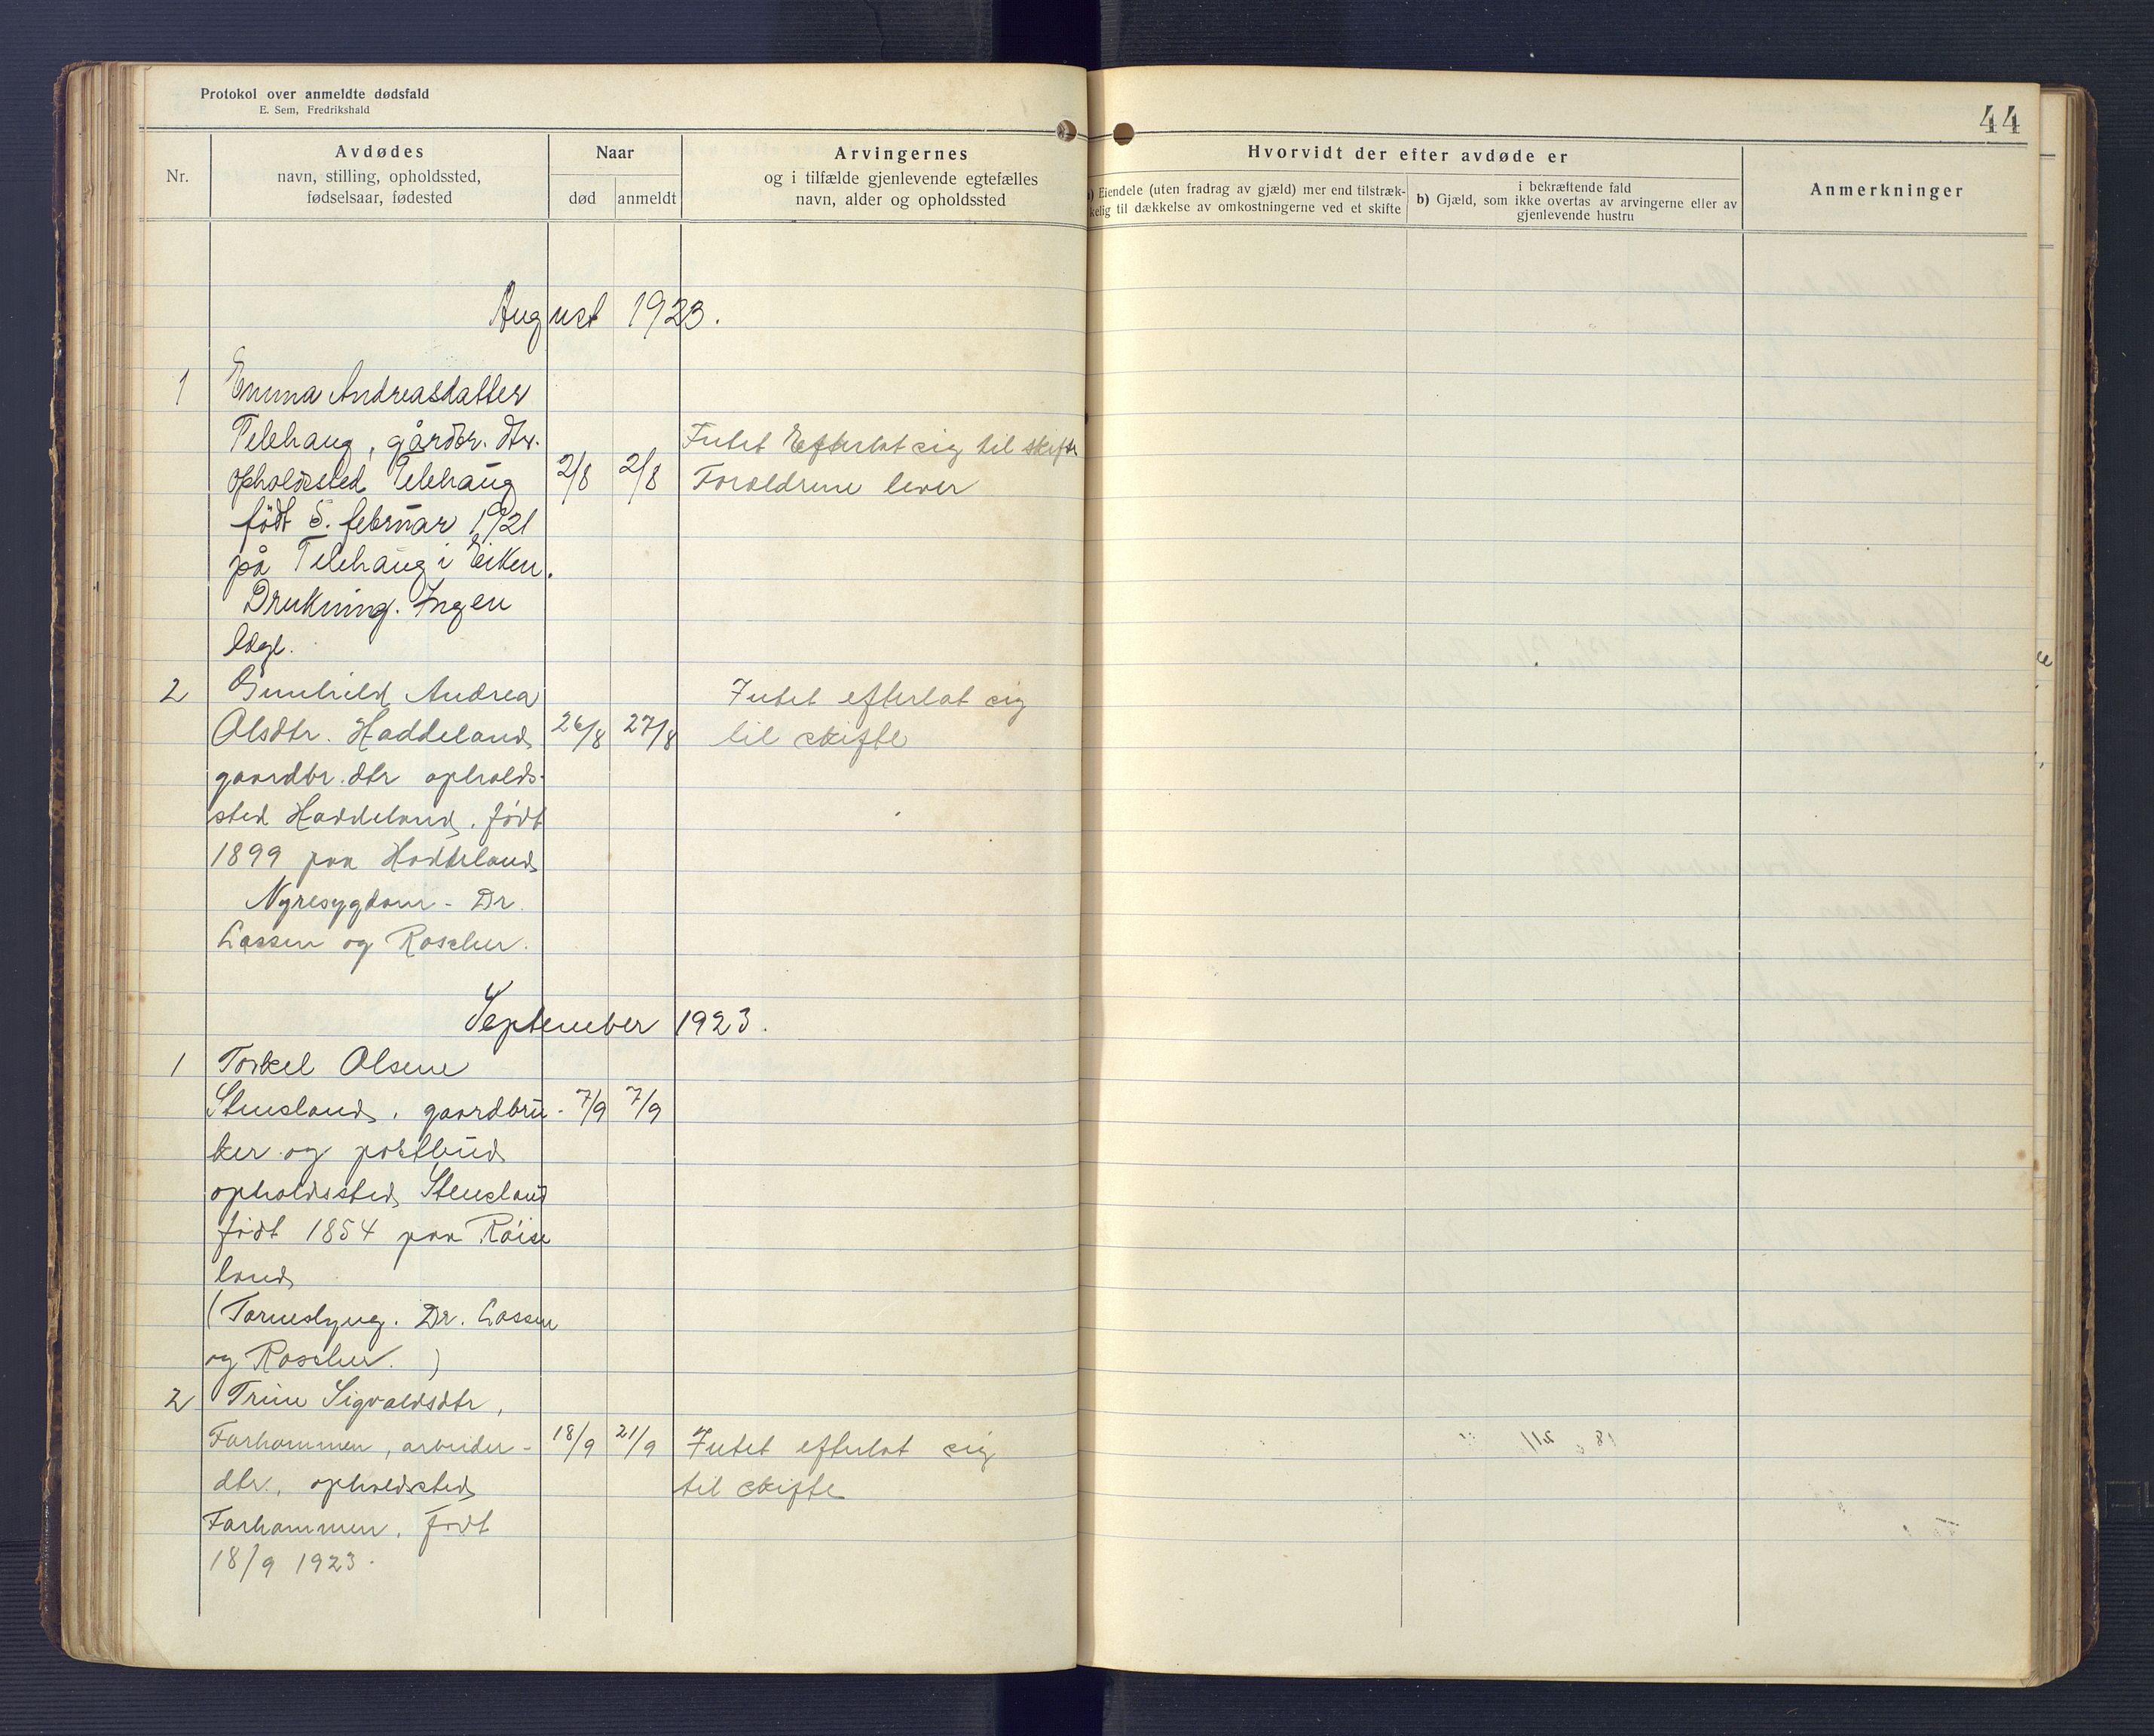 Protokol over anmeldte dødsfald
E. Sem, Fredrikshald
44
Nr.
Avdødes
navn, stilling, opholdssted,
fødselsaar, fødested
Naar
død
anmeldt
Arvingernes
og i tilfælde gjenlevende egtefælles
navn, alder og opholdssted
Hvorvidt der efter avdøde er
a) Eiendele (uten fradrag av gjæld) mer end tilstræk-
kelig til dækkelse av omkostningerne ved et skifte
i bekræftende fald
b) Gjæld, som ikke overtas av arvingerne eller av
gjenlevende hustru
Anmerkninger
August 1923.
1 Emma Andreasdatter
Telehaug, gårdbr. dtr.
opholdssted Telehaug 2/8 2/8
født 5. februar 1921
på Telehaug i Eiken.
Drukning. Ingen
læge.
Intet Efterlot sig til skifte
Foreldrene lever
2 Gunhild Andrea
Olsdtr. Haddeland 26/8 27/8
gaardbr. dtr opholds-
sted Haddeland, født
1899 paa Haddeland
Nyresygdom - Dr.
Lassen og Roscher.
Intet efterlot sig
til skifte
September 1923.
1 Torkel Olsene
Stensland, gaardbru- 7/9 7/9
ker og postbud
opholdssted Stensland
født 1854 paa Røise
land
(Tarmeslyng. Dr. Lassen
og Roscher. )
2 Trine Sigvaldsdtr,
Farhammen, arbeider- 18/9 21/9
dtr., opholdsted
Farhammen, født
18/9 1923.
Intet efterlot sig
til skifte